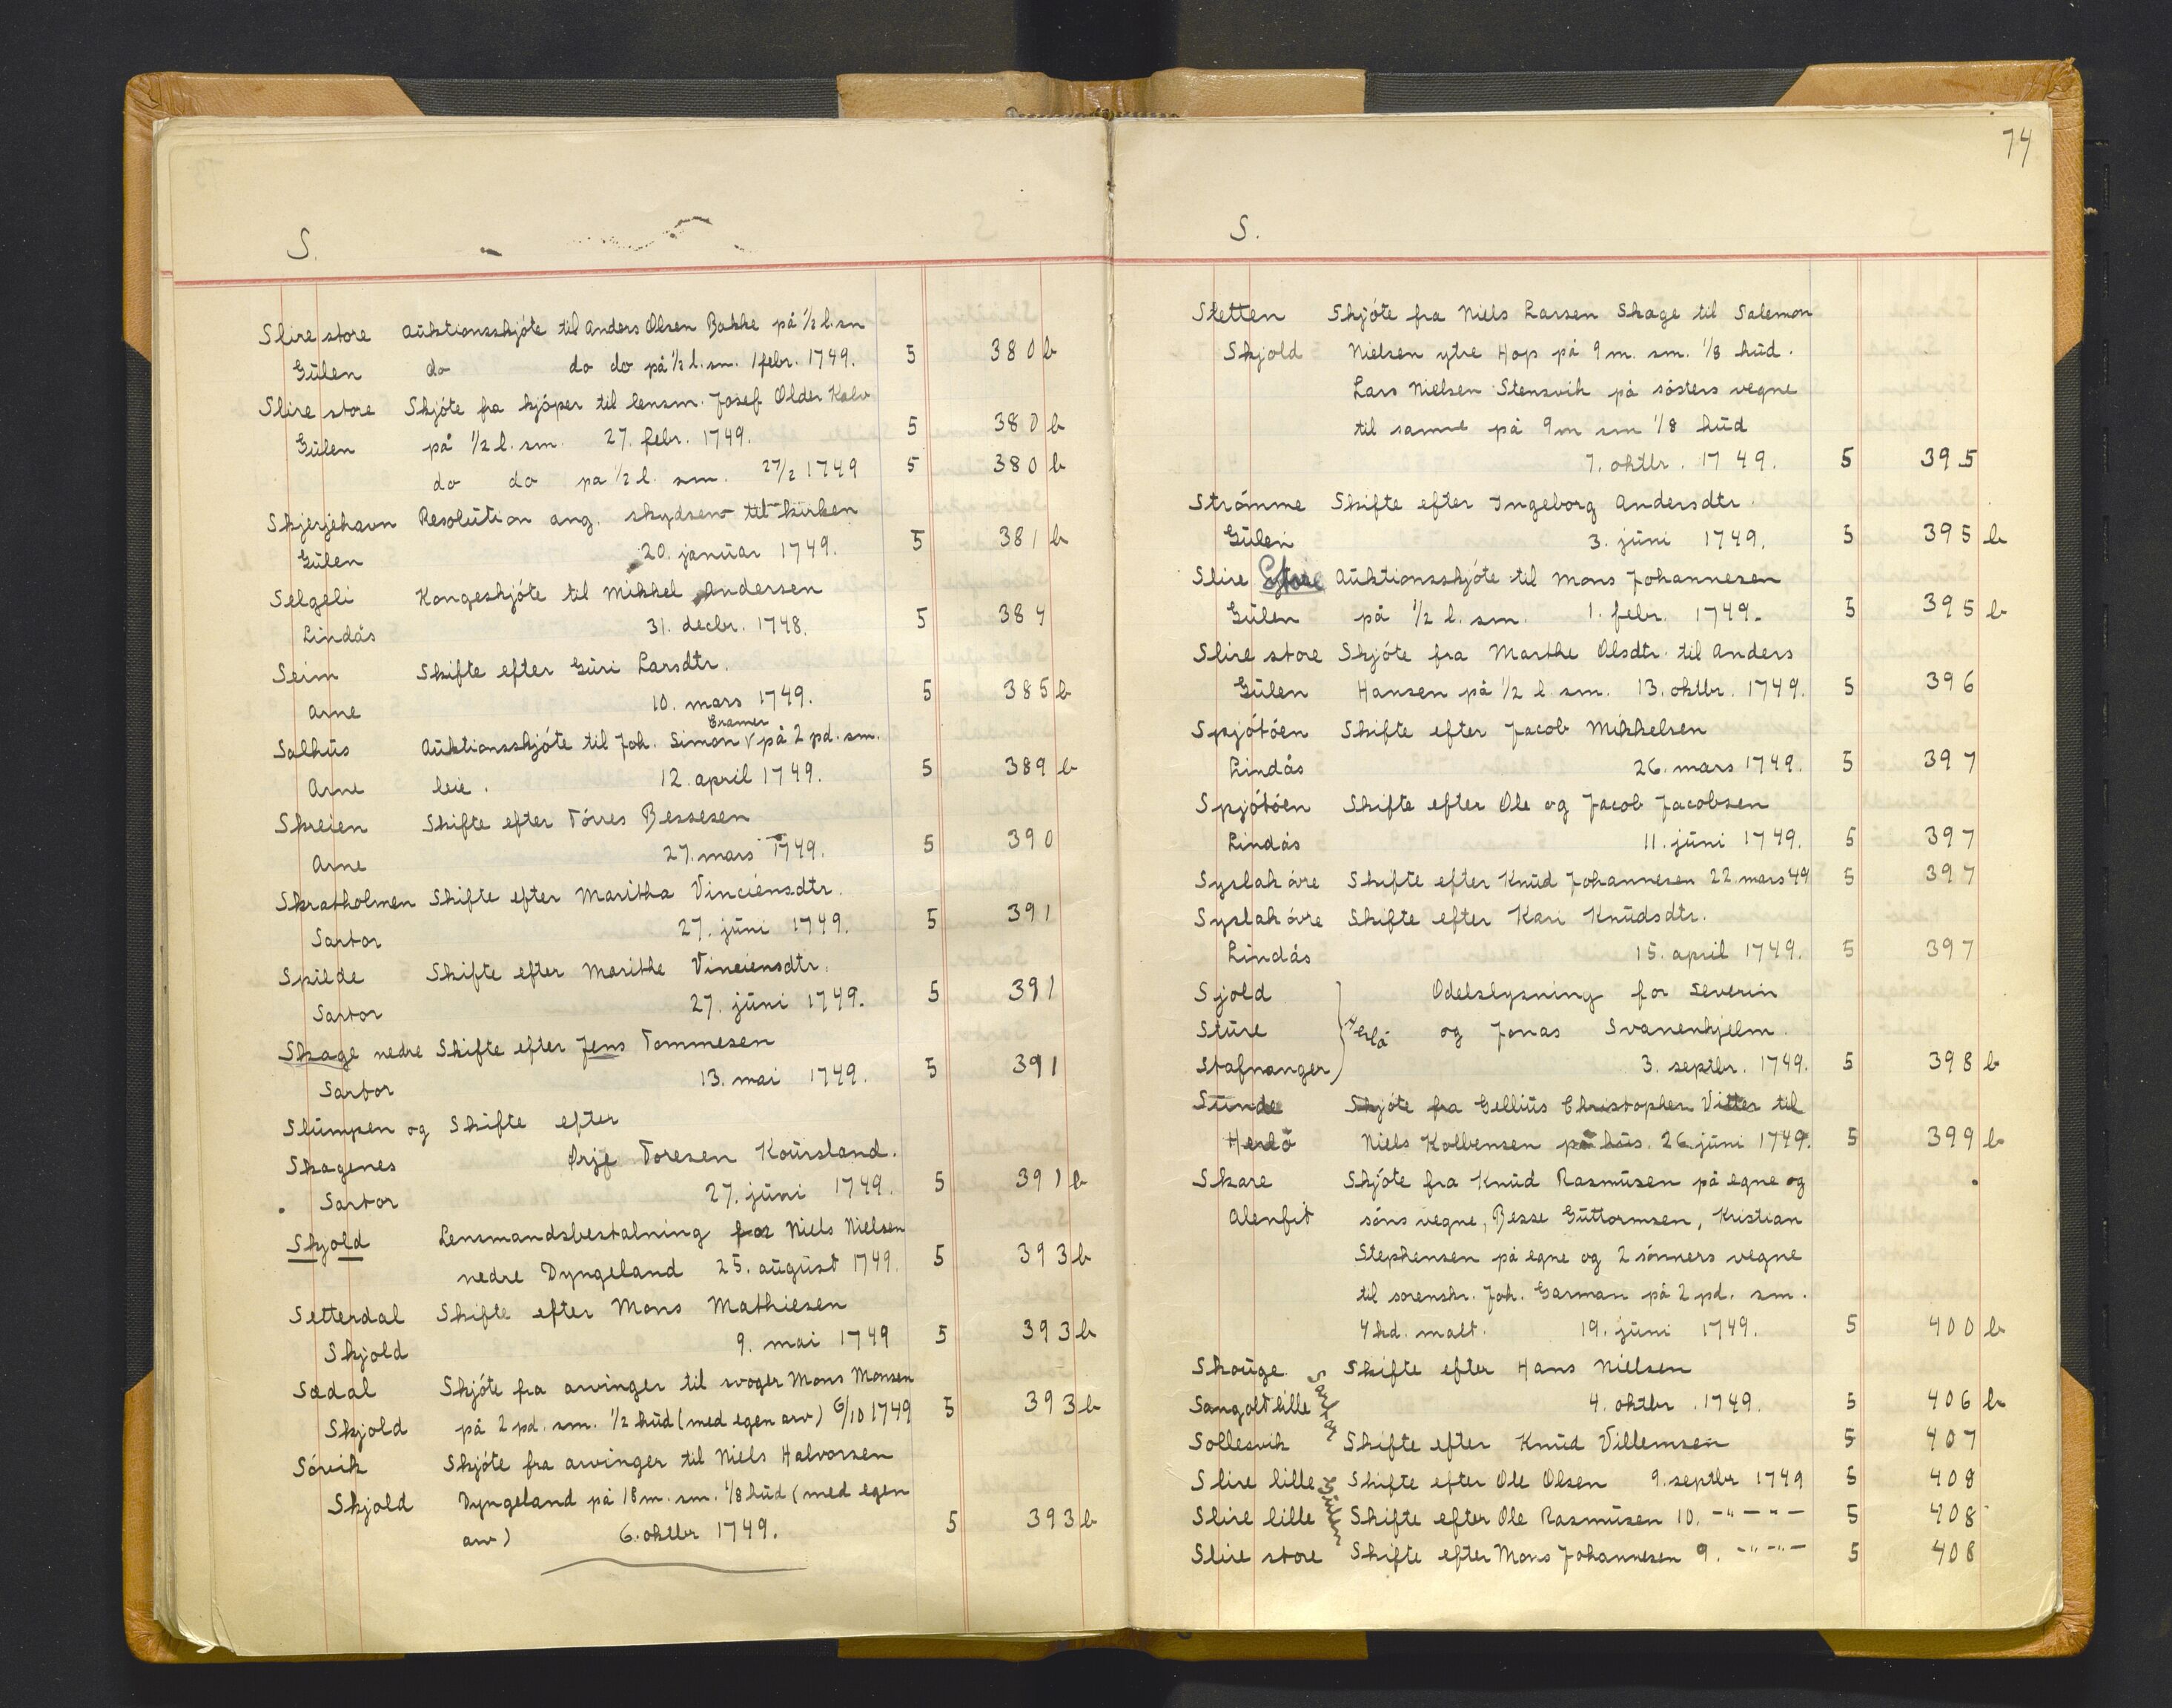 S.
Slire store Auktionsskjóte til Anders Olsen Bakke på 1/2 l. sm
Gülen do do do på 1/2 l. sm. 1 febr. 1749. 5 380 b
Slire store Skjóte fra kjóper til lensm. Josef Older Kolv
Gülen på 1/2 l. sm. 27. febr. 1749. 5 380 b
do do pa 1/2 l. sm. 27/2 1749 5 380 b
Skjerjehavn Resolütion ang. skydsen til kirken
Gülen 20. janüar 1749. 5 381 b
Selgeli Kongeskjóte til Mikkel Andersen
Lindås 31. decbr. 1748. 5 384
Seim Skifte efter Güri Larsdtr.
Arne 10. mars 1749. 5 385 b
Cramer
Salhüs Auktionsskjóte til Joh. Simon v på 2 pd. sm.
Arne leie. 12. april 1749. 5 389 b
Skreien Skifte efter Tórres Bessesen
Arne 27. mars 1749. 5 390
Skratholmen Skifte efter Maritha Vinciensdtr.
Sartor 27. jüni 1749. 5 391
Spilde Skifte efter Marithe Vinciensdtr.
Sartor 27. jüni 1749. 5 391
Skage nedre Skifte efter Jens Tommesen
Sartor 13. mai 1749. 5 391
Slümpen og Skifte efter
Skagenes Ørje Toresen Koürsland.
Sartor 27. jüni 1749. 5 391 b
Skjold Lensmandsbestalning for Niels Nielsen
nedre Dyngeland 25. aügüst 1749. 5 393 b
Setterdal Skifte efter Mons Mathiesen
Skjold 9. mai 1749 5 393 b
Sædal Skjóte fra arvinger til svoger Mons Monsen
Skjold på 2 pd. sm. 1/2 hüd (med egen arv) 6/10 1749 5 393 b
Sórvik Skjóte fra arvinger til Niels Halvorsen
Skjold Dyngeland på 18 m. sm. 1/8 hüd (med egen
arv) 6. oktbr 1749. 5 393 b
74
S.
Stetten Skjóte fra Niels Larsen Skage til Salemon
Skjold Nielsen ytre Hop på 9 m. sm. 1/8 hüd.
Lars Nielsen Stensvik på sósters vegne
til samme på 9 m sm 1/8 hüd
7. oktbr. 1749. 5 395
Strómme Skifte efter Ingeborg Andersdtr.
Gülen 3. jüni 1749. 5 395 b
Slire Store Auktionsskjóte til Mons Johannesen
Gülen på 1/2 l. sm. 1. febr. 1749. 5 395 b
Slire store Skjóte fra Marthe Olsdtr. til Anders
Gülen Hansen på 1/2 l. sm. 13. oktbr. 1749. 5 396
Spjótóen Skifte efter Jacob Mikkelsen
Lindås 26. mars 1749. 5 397
Spjótóen Skifte efter Ole og Jacob Jacobsen
Lindås 11. jüni 1749. 5 397
Syslak óvre Skifte efter Knüd Johannesen 22. mars 49 5 397
Syslak óvre Skifte efter Kari Knüdsdtr.
Lindås 15. april 1749. 5 397
Sjold Odelslysning for Severin
Stüre og Jonas Svanenhjelm.
Stafnanger 3. septbr. 1749. 5 398 b
Sünde Skjóte fra Gellius Christopher Vitter til
Herló Niels Kolbensen på hüs. 26. jüni 1749. 5 399 b
Skare Skjóte fra Knüd Rasmüsen på egne og
Alenfit sóns vegne, Besse Güttormsen, Kristian
Stephensen på egne og 2 sónners vegne
til sorenskr. Joh. Garman på 2 pd. sm.
4 hd. malt. 19. jüni 1749. 5 400 b
Skoüge Skifte efter Hans Nielsen
Sangolt lille Sartor 4. oktbr. 1749. 5 406 b
Sollesvik Skifte efter Knüd Villemsen 5 407
Slire lille Skifte efter Ole Olsen 9. septbr 1749 5 408
Slire lille Gülen Skifte efter Ole Rasmüsen 10. -"- -"- 5 408
Slire store Skifte efter Mons Johannesen 9. -"- -"- 5 408